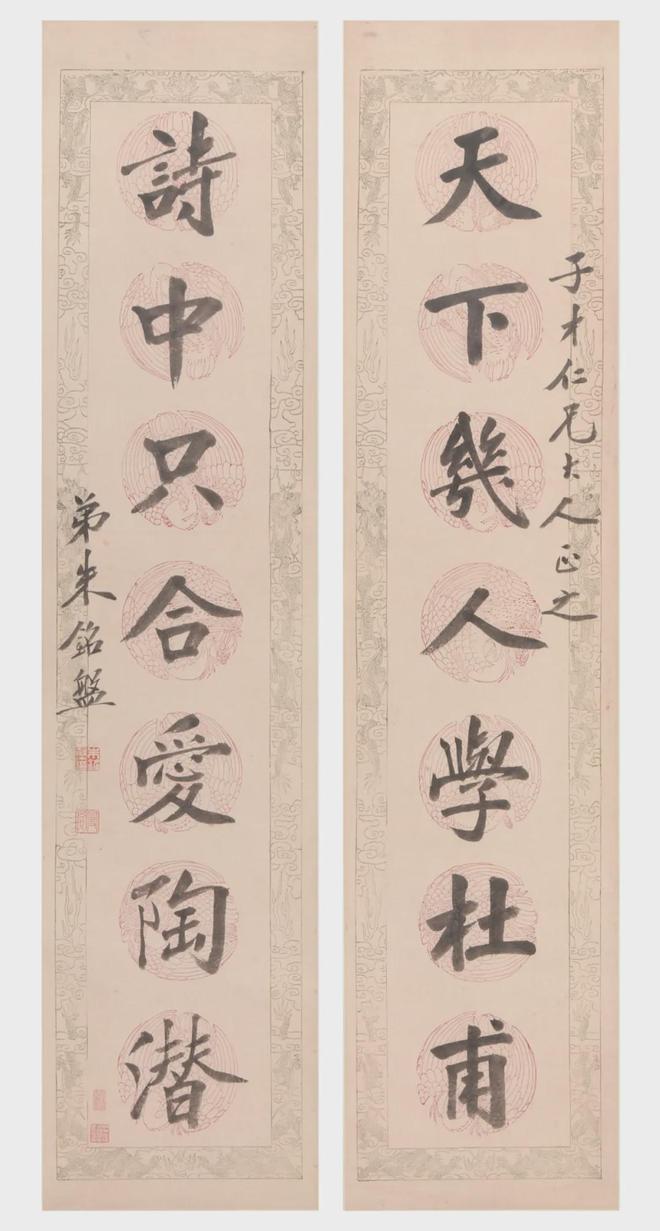 子才仁兄大人正之
天下幾人學杜甫
詩中只合愛陶潛
弟朱銘盤